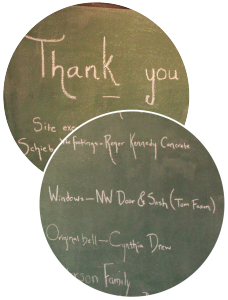 Thank you
Site exc
Schieb
Footings - Roger Kennedy Concrete
Windows - NW Door & Sash (Tom Faxon)
Original bell - Cynthia Drew
son Family